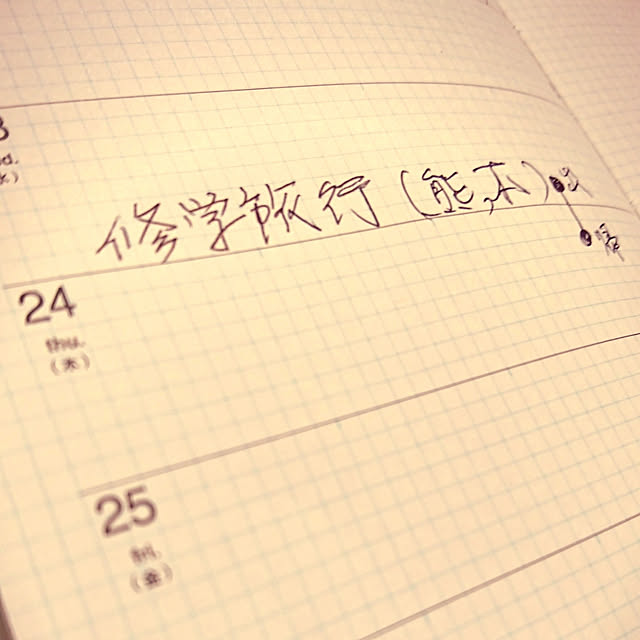 3
d.
修学旅行（熊本）
24
thu.
（木）
25
fri.
（金）